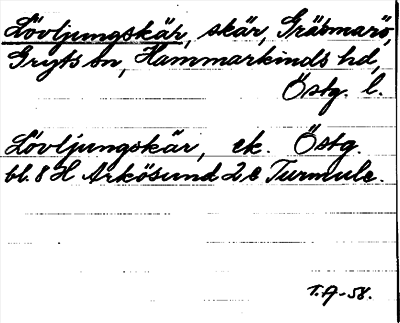 Lövljungskär, skär, Gräsmarö,
Gryts sn, Hammarkinds hd,
Östg. l.
Lövljungskär, ek. Östg.
bl. 8 H Arkösund 2 e Turmule.
T.A-58.